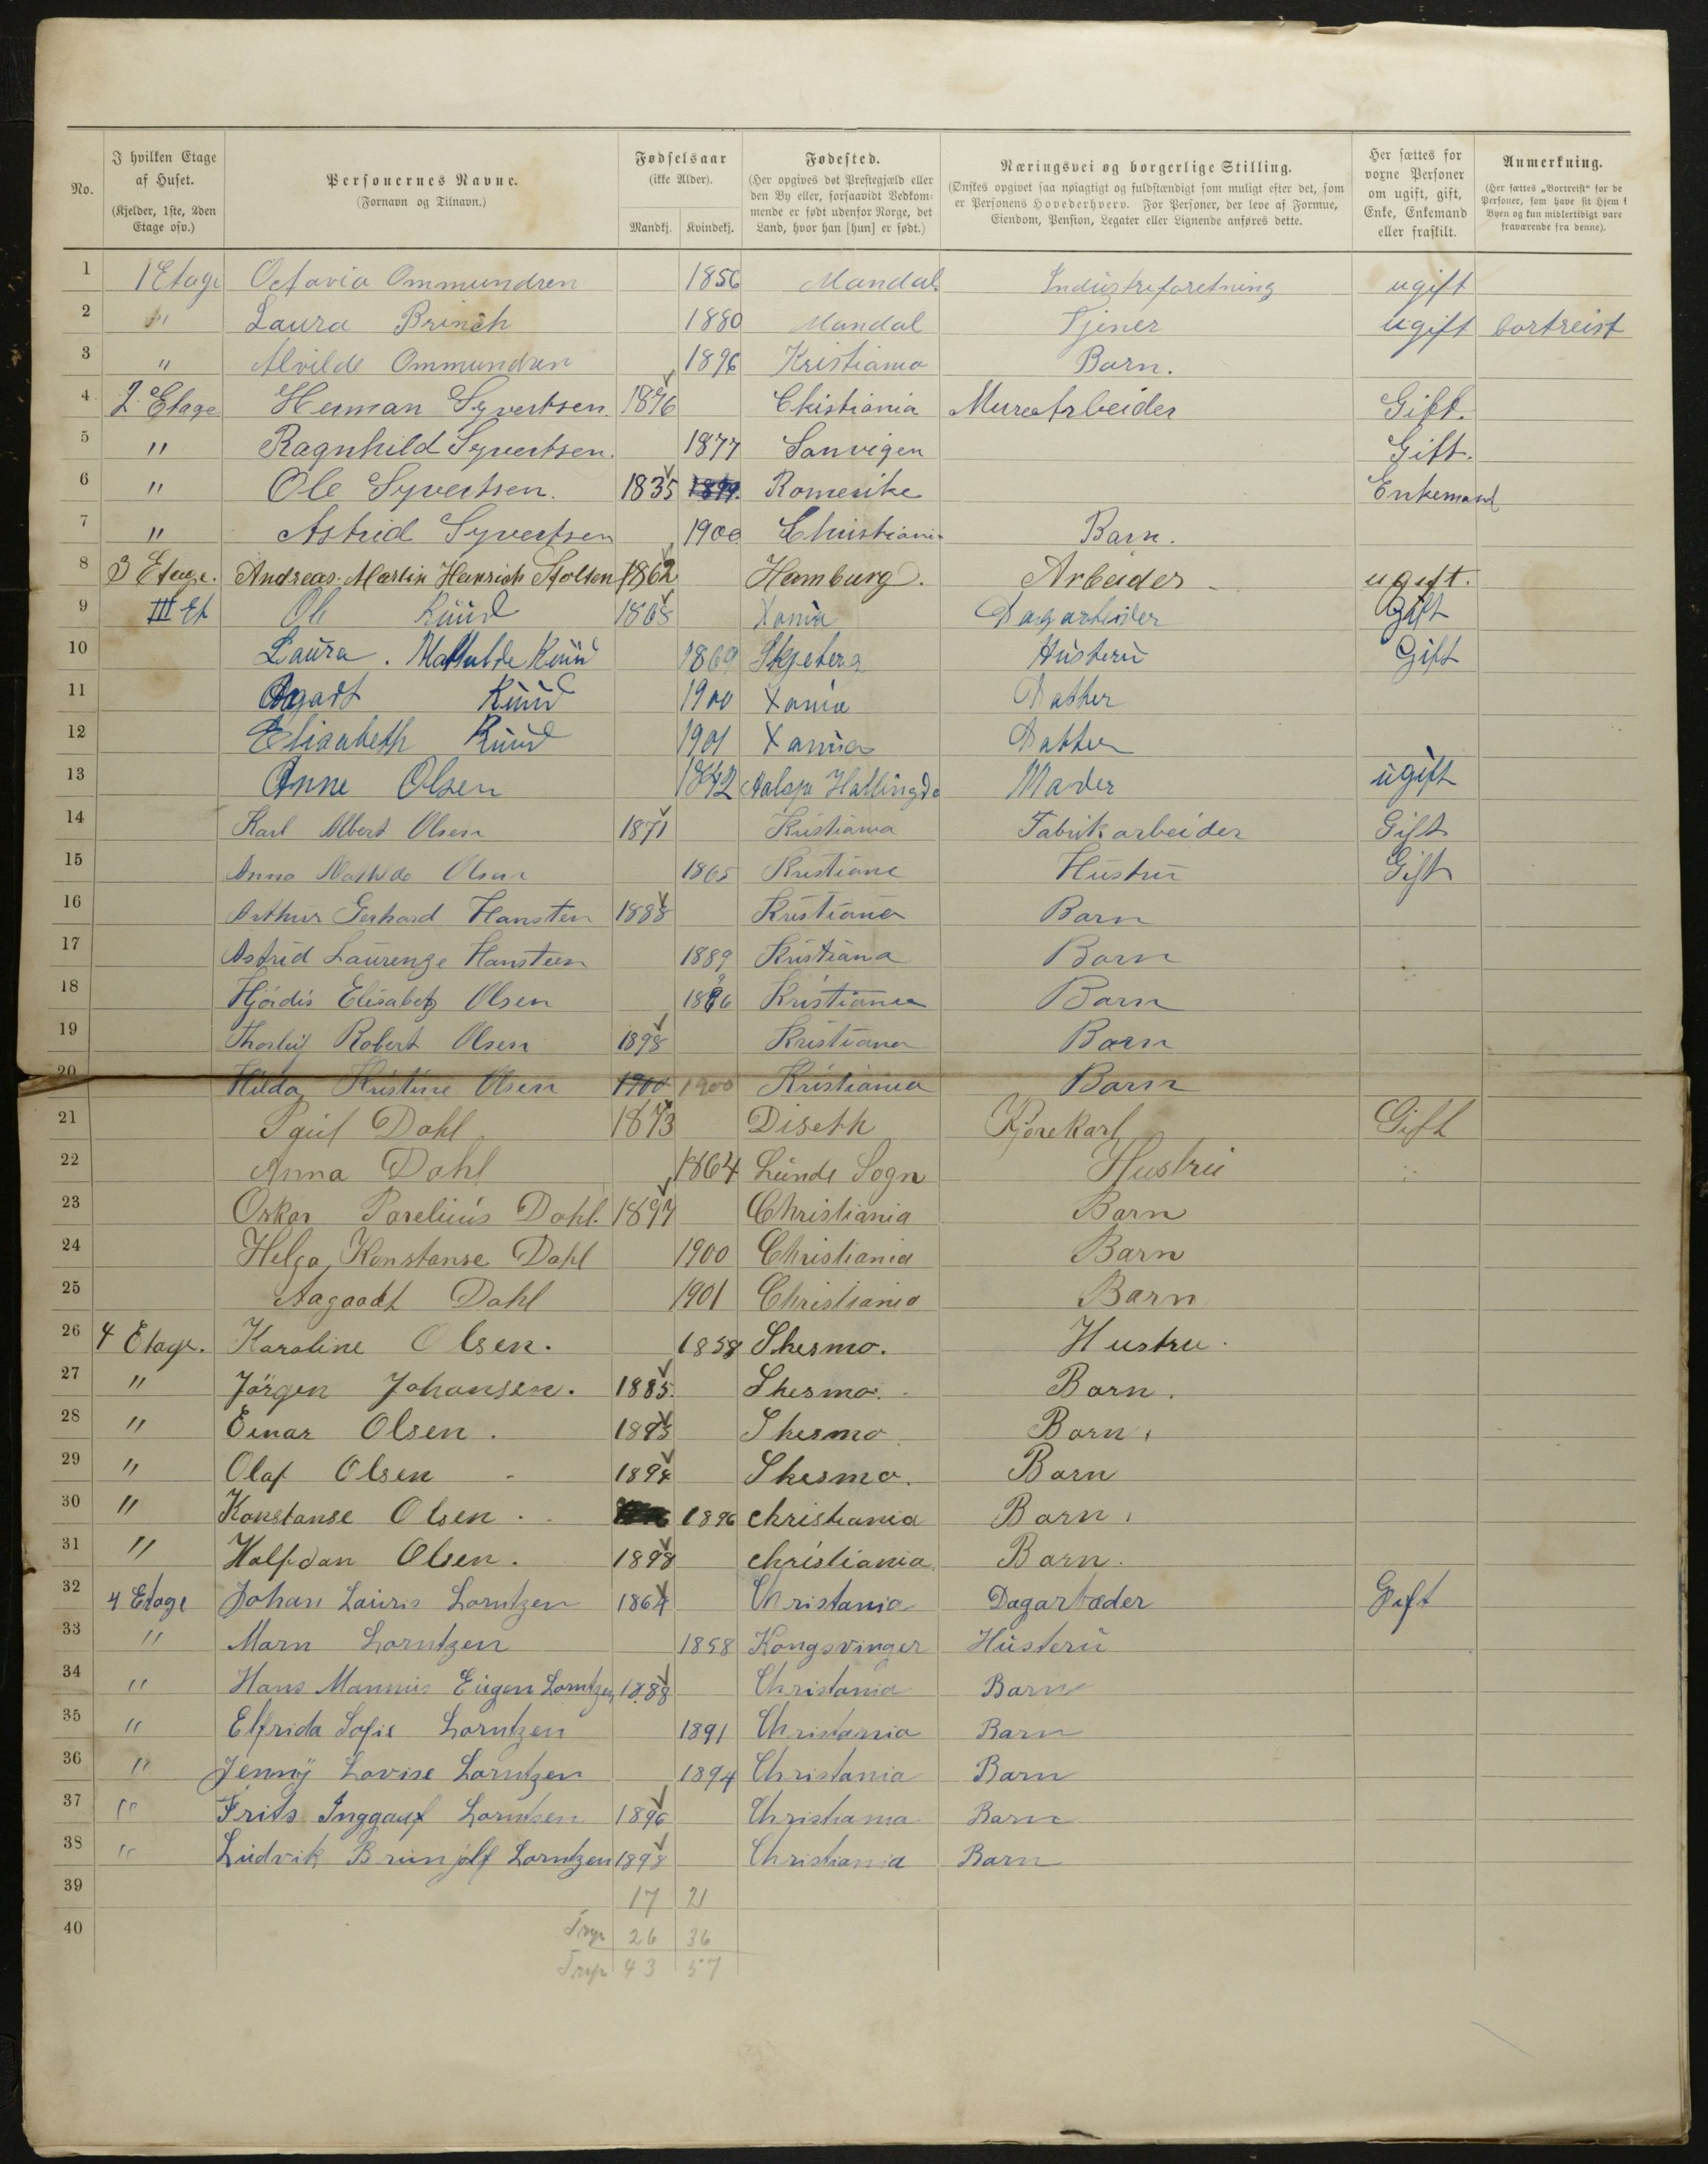 No.
I hvilken Etage af Huset.
(Kjelder, 1ste, 2den Etage osv.)
Personernes Navne.
(Fornavn og Tilnavn.)
Fødselsaar
(ikke Alder).
Mandkj. Kvindekj.
Fødested.
(Her opgives det Prestegjæld eller den By eller, forsaavidt Vedkommende er født udenfor Norge, det Land, hvor han [hun] er født.)
Næringsvei og borgerlige Stilling.
(Ønskes opgivet saa nøiagtigt og fuldstændigt som muligt efter det, som er Personens Hovederhverv. For Personer, der leve af Formue, Eiendom, Pension, Legater eller Lignende anføres dette.
Her sættes for voxne Personer om ugift, gift, Enke, Enkemand eller fraskilt.
Anmerkning.
(Her sættes „Bortreist“ for de Personer, som have sit Hjem i Byen og kun midlertidigt vare fraværende fra denne).
1 1 Etage Octavia Ommundsen 1856 Mandal. Industriforetning ugift
2 " Laura Brinch 1880 Mandal Tjener ugift bortreist
3 " Alvilde Ommundsen 1896 Kristiania Barn.
4 2 Etage Herman Syvertsen. 1876 Chistiania Murearbeider Gift.
5 " Ragnhild Syvertsen. 1877 Sanvigen Gift.
6 " Ole Syvertsen. 1835 Romerike Enkemand
7 " Astrid Syvertsen 1900 Christiania Barn.
8 3 Etage. Andreas Martin Heinrich Stolten 1862 Hamburg. Arbeider ugift.
9 III Et Ole Ruud 1868 Xania Dagarbeider Gift
10 Laura. Mathilde Ruud 1869 Skjeberg Husteru Gift
11 Agart Ruud 1900 Xania Datter
12 Elisabeth Ruud 1901 Xania Datter
13 Anne Olsen 1842 Moder ugift
14 Karl Albert Olsen 1871 Kristiania Fabrikarbeider Gift
15 Anna Mathilde Olsen 1865 Kristiane Hustru Gift
16 Arthur Gerhard Hansten 1888 Kristiania Barn
17 Astrid Laurenze Hansteen 1889 Kristiana Barn
18 Hjördis Elisabeth Olsen 1896 Kristiania Barn
19 Thorleif Robert Olsen 1898 Kristiana Barn
20 Hilda Kristine Olsen 1900 1900 Kristiania Barn
21 Dahl 1873 Diseth Kjørekarl Gift
22 Anna Dahl 1864 Lunde Sogn Hustru
23 Oskar Parelius Dahl. 1897 Christiania Barn
24 Helga Konstanse Dahl 1900 Christiania Barn
25 Aagaadt Dahl 1901 Christiania Barn
26 4 Etage. Karoline Olsen. 1858 Skesmo. Hustru.
27 " Jörgen Johansen. 1885. Skesmo. Barn.
28 " Einar Olsen. 1893 Skesmo. Barn.
29 " Olaf Olsen 1894 Skesmo. Barn
30 " Konstanse Olsen. 1896 christiania Barn.
31 " Halfdan Olsen. 1898 christiania Barn.
32 4 Etage Johan Lauris Lorntzen 1864 Christania Dagarbæder Gift
33 " Marn Lorntzen 1858 Kongsvinger Husteru
34 " Hans Mannus Eugen Lorntzen 1888 Christania Barn
35 " Elfrida Sofie Lorntzen 1891 Christania Barn
36 " Jenny Lovise Lorntzen 1894 Christania Barn
37 " Frits Inggauf Lorntzen 1896 Christiania Barn
38 " Ludvik Brunjolf Lorntzen 1898 Christiania Barn
39 17 21
40 26 36
43 57